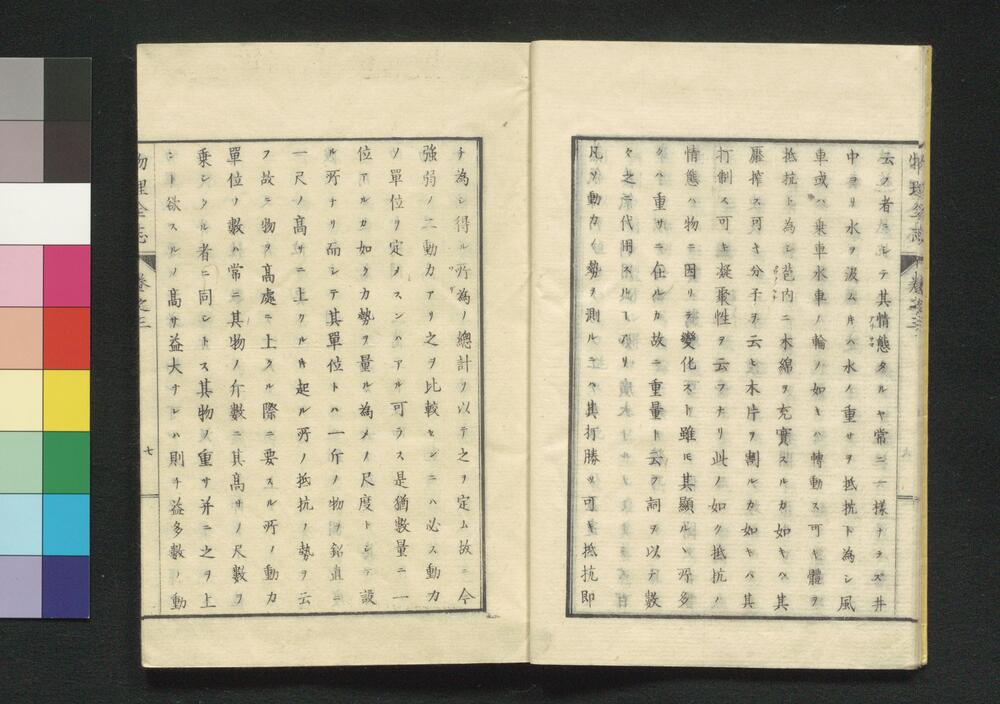 物理全志 卷之三
云フ者ニシテ其情態タルヤ常ニ一樣ナラズ井
中ヨリ水ヲ汲ムキハ水ノ重サヲ抵抗ト為シ風
車或ハ乗車水車ノ輪ノ如キハ轉動ス可キ體ヲ
抵抗ト為シ苞内ニ木綿ヲ充實スルカ如キハ其
壓搾ス可キ分子ヲ云ヒ木片ヲ割ルカ如キハ其
打制ス可キ凝聚性ヲ云フナリ此ノ如ク抵抗ノ
情態ハ物ニ因リテ變化スト雖モ其顯ルヽ所多
クハ重サニ在ルカ故ニ重量ト云フ詞ヲ以テ數
々之ニ代用スルナリ
凡ソ動力ノ勢ヲ測ルニハ其打勝ツ可キ抵抗即
チ為シ得ル所為ノ總計ヲ以テ之ヲ定ム故ニ今
強弱ノ二動力アリ之ヲ比較センニハ必ス動力
ノ單位ヲ定メスンハアル可ラス是猶數量ニ一
位アルカ如ク力勢ヲ量ル為メノ尺度トシテ設
ル所ナリ而シテ其單位トハ一斤ノ物ヲ鉛直ニ
一尺ノ高サニ上クルキ起ル所ノ抵抗ノ勢ヲ云
フ故ニ物ヲ高處ニ上クル際ニ要スル所ノ動力
單位ノ數ハ常ニ其物ノ斤數ニ其高サノ尺數ヲ
乗シタル者ニ同シトス其物ノ重サ并ニ之ヲ上
ント欲スルノ高サ益大ナレハ則チ益多數ノ動
物理全志 卷之三 七